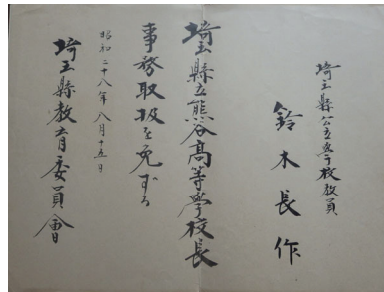 埼玉縣公立學校敎員
鈴木長作
埼玉縣立熊谷高等學校長
事務取扱を免ずる
昭和二十八年八月十五日
埼玉縣敎育委員會